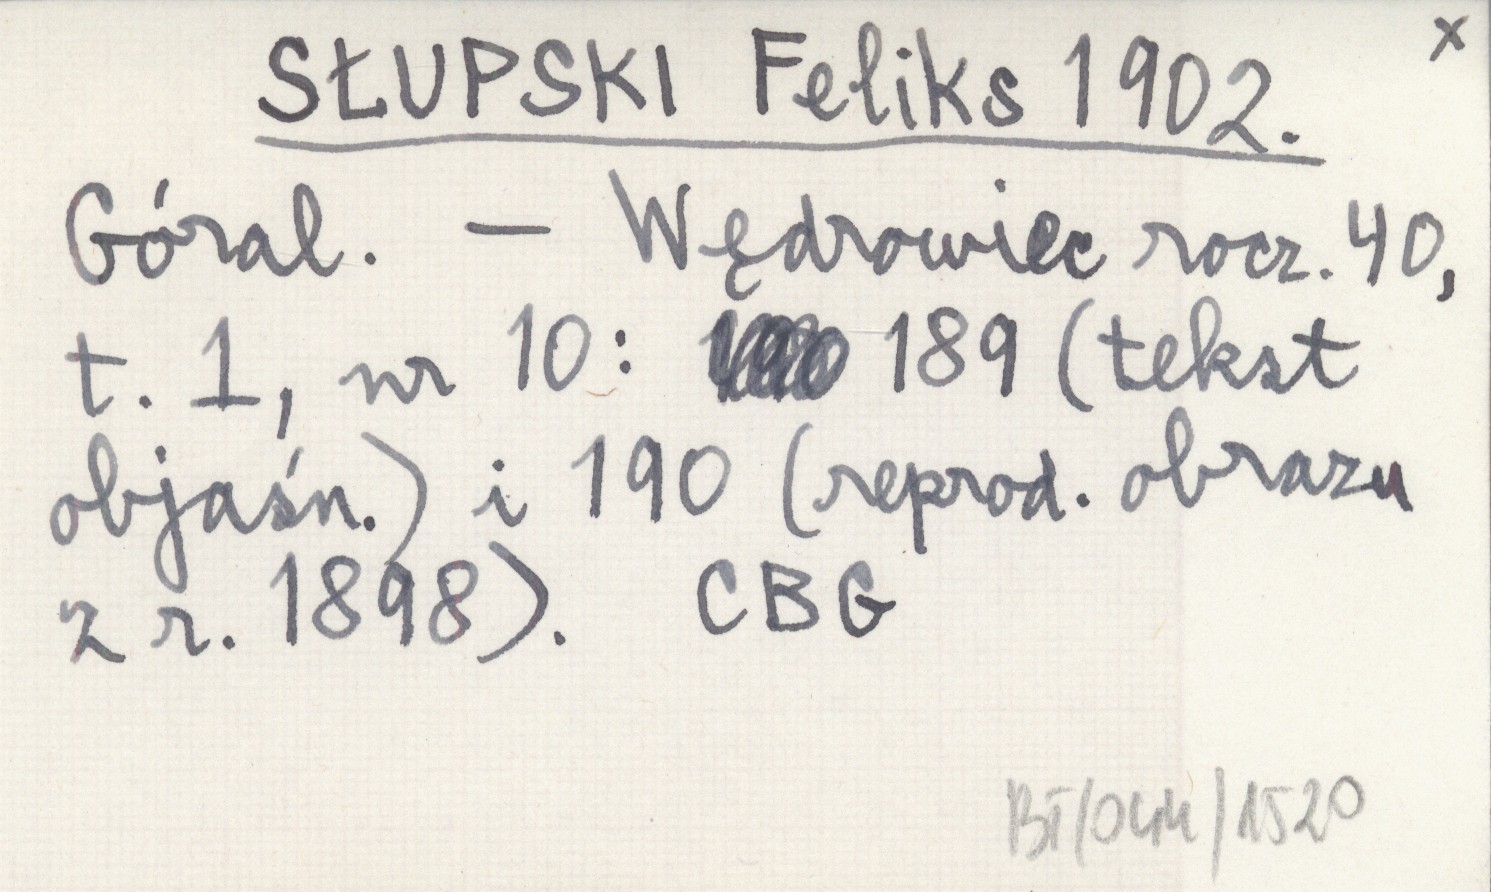 x
SŁUPSKI Feliks 1902.
Góral. — Wędrowiec rocz. 40,
t. 1, nr 10: 189 (tekst
objaśn.) i 190 (reprod. obrazu
z r. 1898). CBG